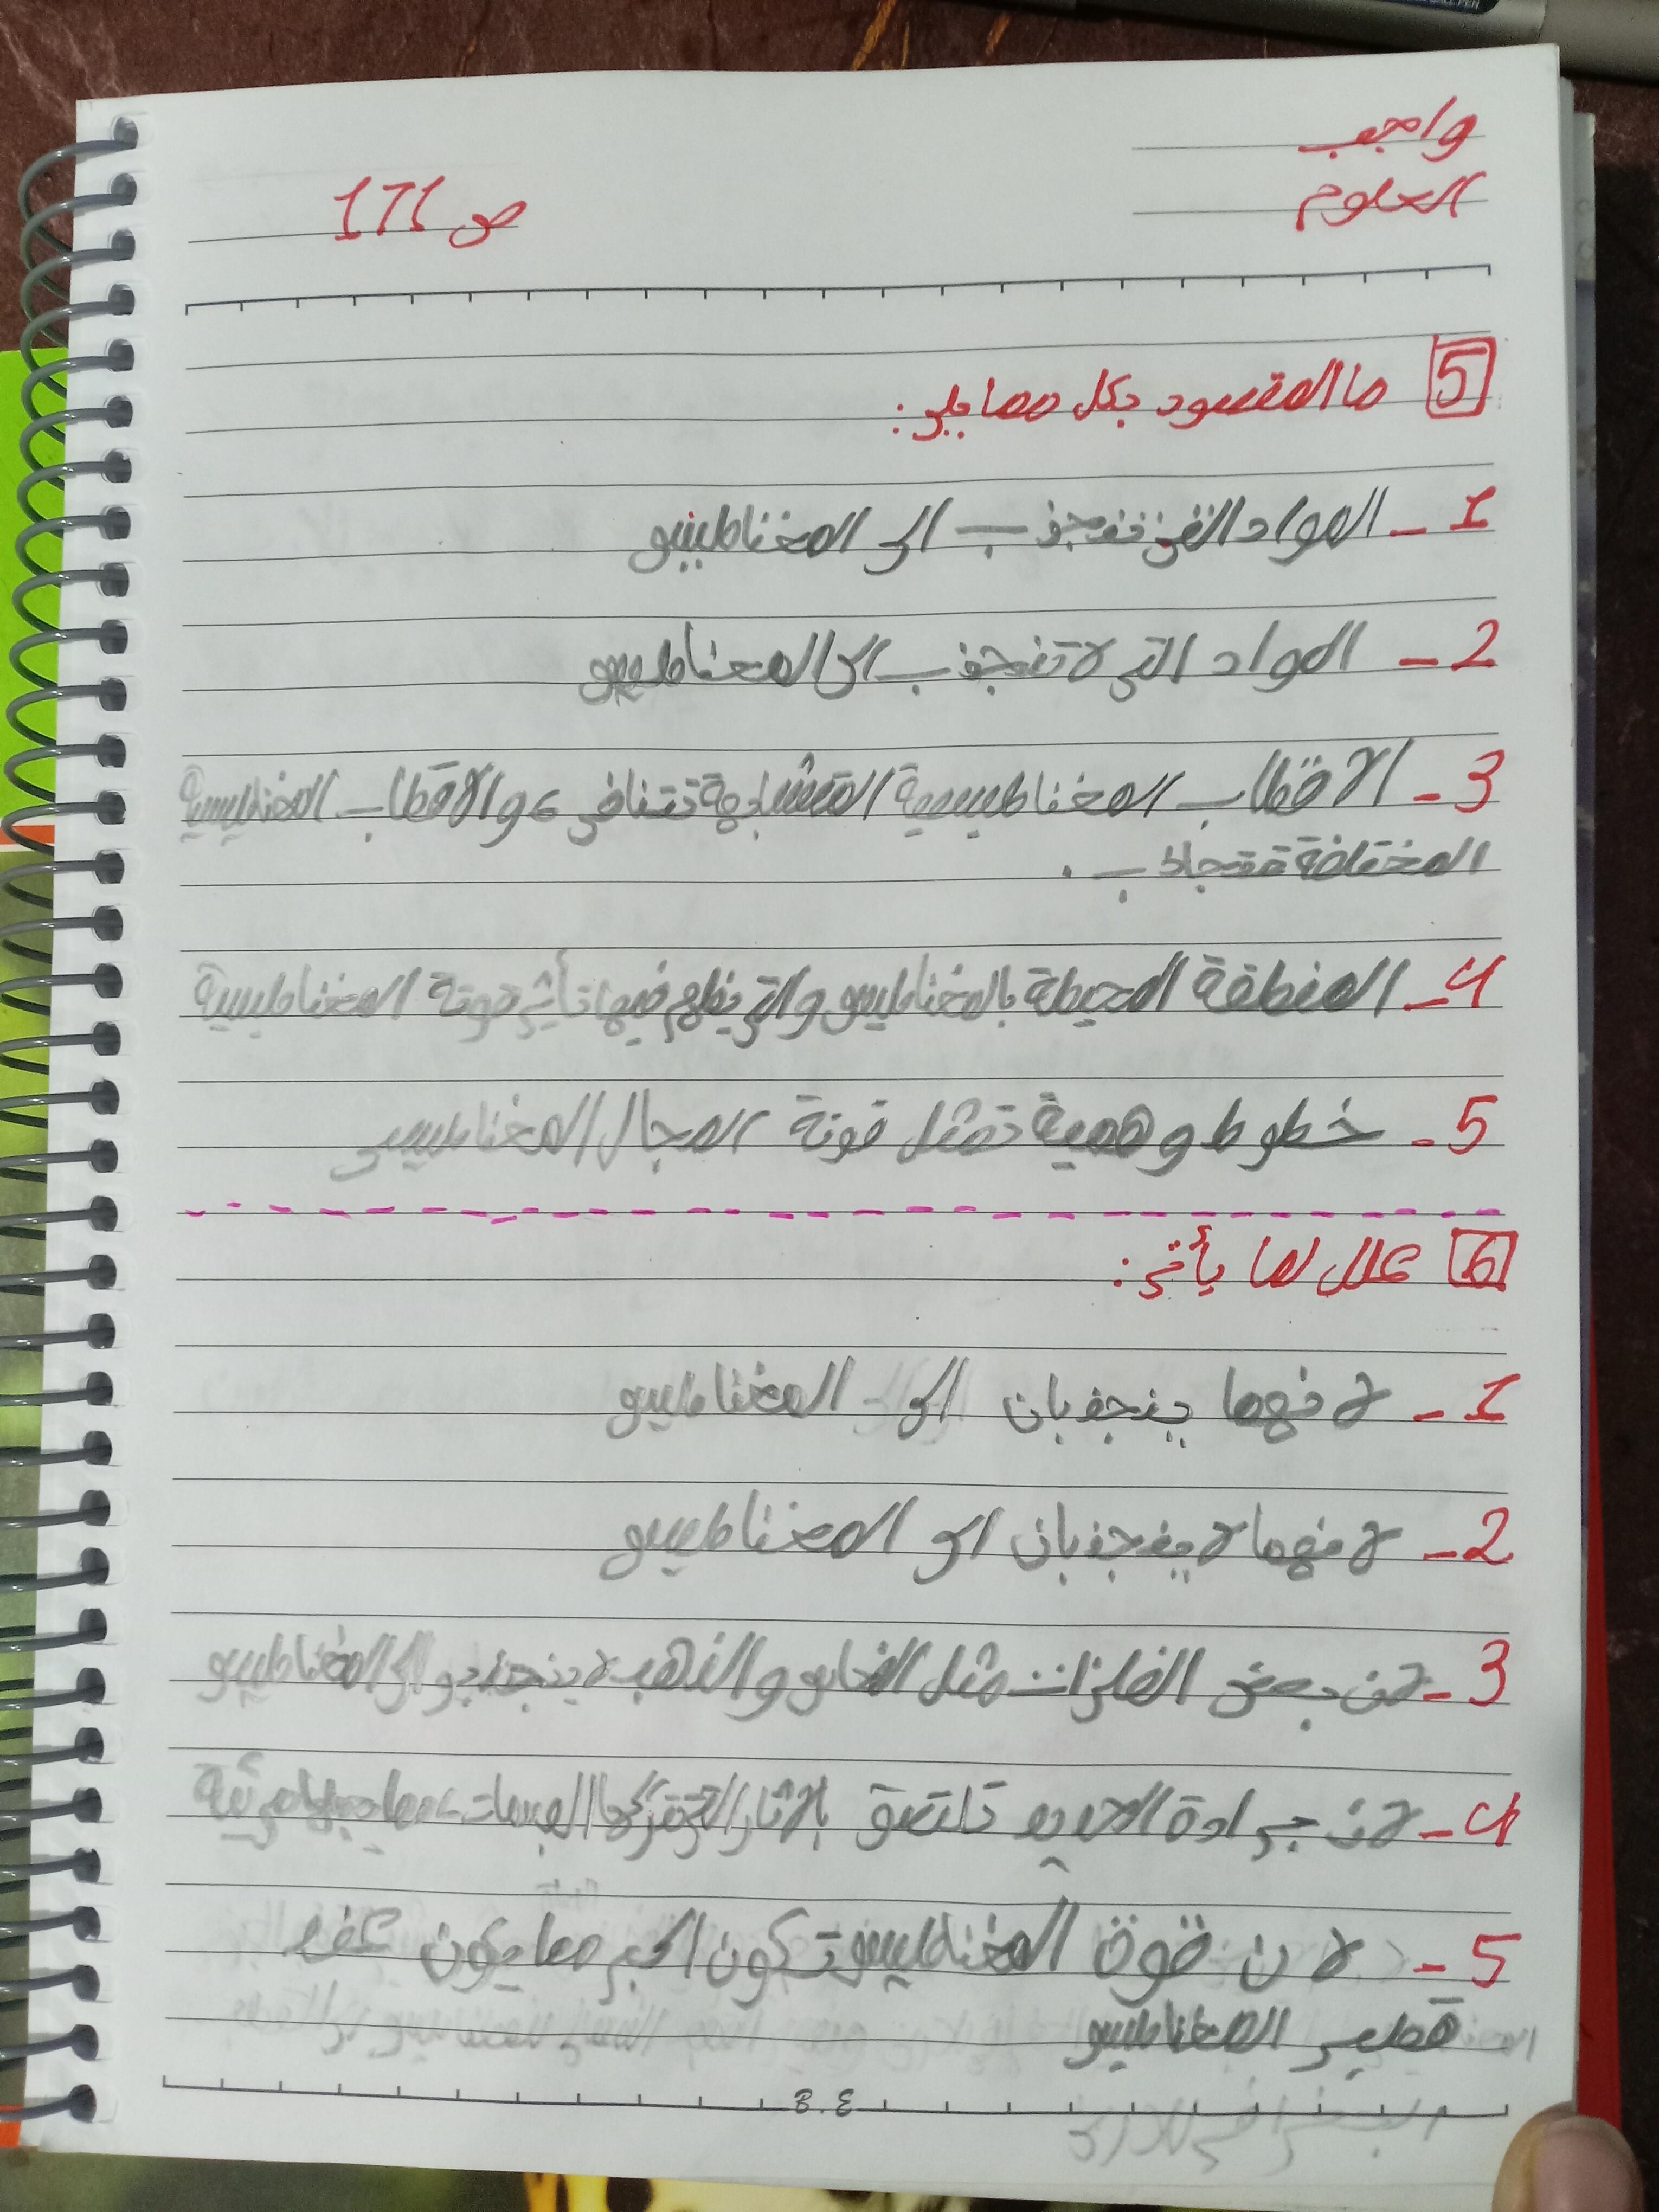 واجب
العلوم
ص 171
5 ما المقصود بكل مما يلي :
1 - المواد التي تنجذب الى المغناطيس
2 - المواد التي لا تنجذب الى المغناطيس
3 - الاقطاب المغناطيسية المتشابهة تتنافر ، والاقطاب المغناطيسية
المختلفة تتجاذب .
4 - المنطقة المحيطة بالمغناطيس والتي يظهر فيها تأثير قوته المغناطيسية
5 - خطوط وهمية تمثل قوة المجال المغناطيسي
6 علل لما يأتي :
1 - لانهما ينجذبان الى المغناطيس
2 - لانهما لا ينجذبان الى المغناطيس
3 - لان بعض الفلزات مثل النحاس والذهب لا ينجذبو الى المغناطيس
4 - لان برادة الحديد تلتصق بالاثار التي تتركها البصمات مما يجعلها مرئية
5 - لان قوة المغناطيس تكون اكبر مما يكون عند
قطبي المغناطيس
B.E